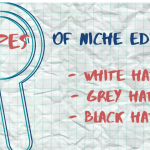 PES OF NICHE ED
- WHITE HA
- GREY HAT
- BLACK HA